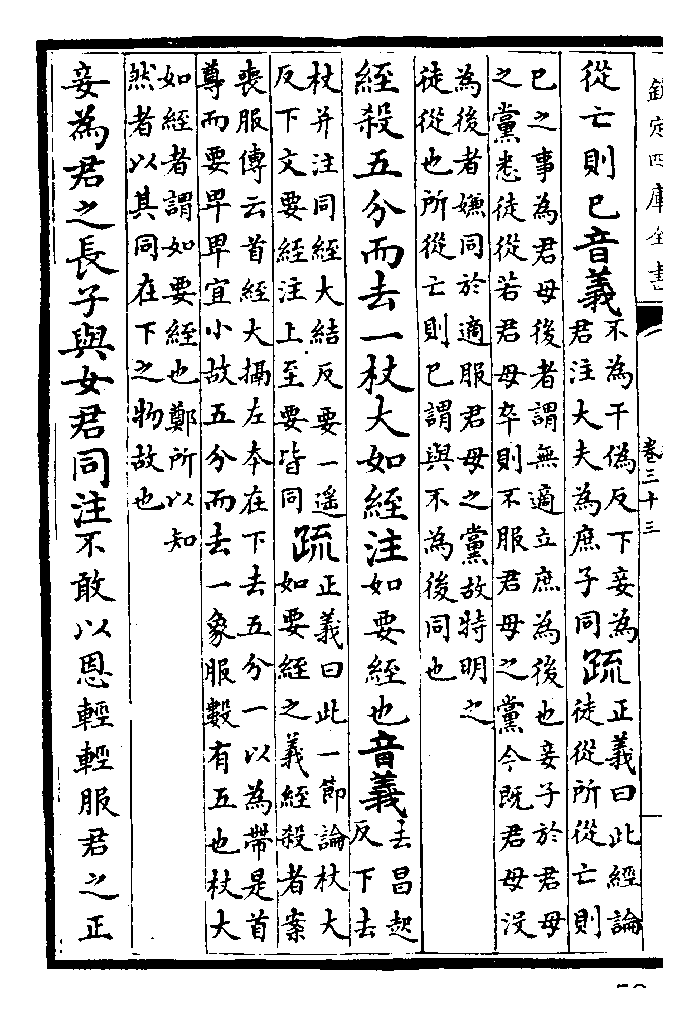 欽定四庫全書
卷三十三
從亡則已音義
不為干偽反下妾為
君注大夫為庶子同
疏
正義曰此經論
徒從所從亡則
已之事為君母後者謂無適立庶為後也妾子於君母
之黨悉徒從若君母卒則不服君母之黨今既君母没
為後者嫌同於適服君母之黨故特明之
徒從也所從亡則已謂與不為後同也
絰殺五分而去一杖大如絰注如要絰也音義
去昌起
反下去
杖并注同絰大結反要一遥
反下文要絰注上至要皆同
疏
正義曰此一節論杖大
如要絰之義絰殺者案
喪服傳云首絰大搹左本在下去五分一以為帶是首
尊而要卑卑宜小故五分而去一象服數有五也杖大
如絰者謂如要絰也鄭所以知
然者以其同在下之物故也
妾為君之長子與女君同注不敢以恩輕輕服君之正